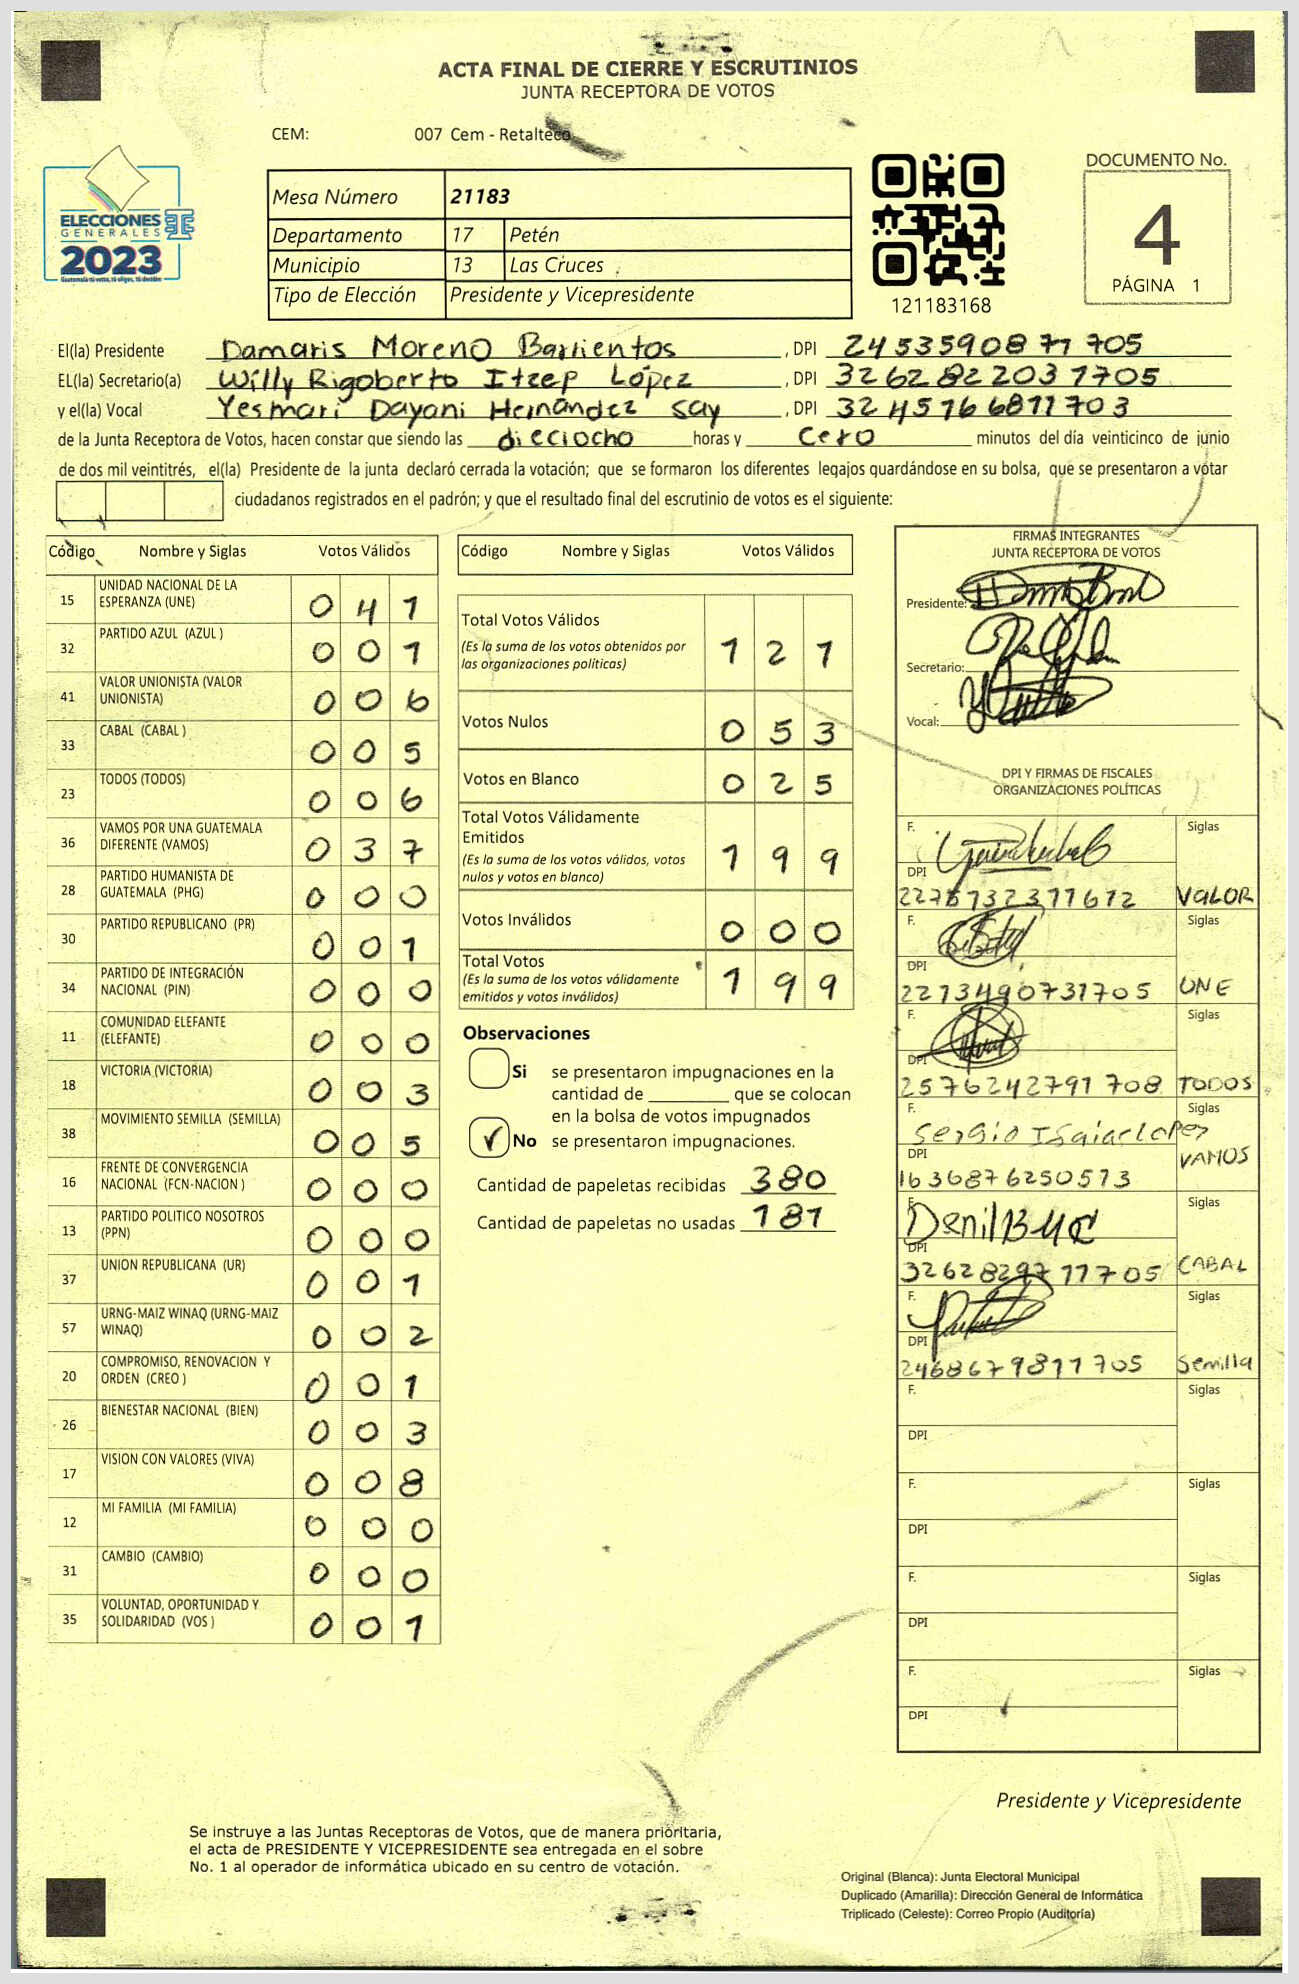 ACTA FINAL DE CIERRE Y ESCRUTINIOS
JUNTA RECEPTORA DE VOTOS
CEM: 007 Cem - Retalteco
ELECCIONES
GENERALES
2023
Guatemala tú votas, tú eliges, tú decides
Mesa Número 21183
Departamento 17 Petén
Municipio 13 Las Cruces
Tipo de Elección Presidente y Vicepresidente
121183168
DOCUMENTO No.
4
PÁGINA 1
El(la) Presidente Damaris Moreno Barrientos, DPI 2453590871705
EL(la) Secretario(a) Willy Rigoberto Itzep López, DPI 3262822031705
y el(la) Vocal Yesmari Dayani Hernández Say, DPI 3245766811703
de la Junta Receptora de Votos, hacen constar que siendo las dieciocho horas y cero minutos del día veinticinco de junio
de dos mil veintitrés, el(la) Presidente de la junta declaró cerrada la votación; que se formaron los diferentes legajos guardándose en su bolsa, que se presentaron a votar
ciudadanos registrados en el padrón; y que el resultado final del escrutinio de votos es el siguiente:
Código Nombre y Siglas Votos Válidos
15 UNIDAD NACIONAL DE LA ESPERANZA (UNE) 0 4 1
32 PARTIDO AZUL (AZUL ) 0 0 1
41 VALOR UNIONISTA (VALOR UNIONISTA) 0 0 6
33 CABAL (CABAL ) 0 0 5
23 TODOS (TODOS) 0 0 6
36 VAMOS POR UNA GUATEMALA DIFERENTE (VAMOS) 0 3 7
28 PARTIDO HUMANISTA DE GUATEMALA (PHG) 0 0 0
30 PARTIDO REPUBLICANO (PR) 0 0 1
34 PARTIDO DE INTEGRACIÓN NACIONAL (PIN) 0 0 0
11 COMUNIDAD ELEFANTE (ELEFANTE) 0 0 0
18 VICTORIA (VICTORIA) 0 0 3
38 MOVIMIENTO SEMILLA (SEMILLA) 0 0 5
16 FRENTE DE CONVERGENCIA NACIONAL (FCN-NACION ) 0 0 0
13 PARTIDO POLITICO NOSOTROS (PPN) 0 0 0
37 UNION REPUBLICANA (UR) 0 0 1
57 URNG-MAIZ WINAQ (URNG-MAIZ WINAQ) 0 0 2
20 COMPROMISO, RENOVACION Y ORDEN (CREO ) 0 0 1
26 BIENESTAR NACIONAL (BIEN) 0 0 3
17 VISION CON VALORES (VIVA) 0 0 8
12 MI FAMILIA (MI FAMILIA) 0 0 0
31 CAMBIO (CAMBIO) 0 0 0
35 VOLUNTAD, OPORTUNIDAD Y SOLIDARIDAD (VOS ) 0 0 1
Código Nombre y Siglas Votos Válidos
Total Votos Válidos 1 2 1
(Es la suma de los votos obtenidos por
las organizaciones politicas)
Votos Nulos 0 5 3
Votos en Blanco 0 2 5
Total Votos Válidamente
Emitidos 1 9 9
(Es la suma de los votos válidos, votos
nulos y votos en blanco)
Votos Inválidos 0 0 0
Total Votos 1 9 9
(Es la suma de los votos válidamente
emitidos y votos inválidos)
Observaciones
Si se presentaron impugnaciones en la
cantidad de ________ que se colocan
en la bolsa de votos impugnados
No se presentaron impugnaciones.
Cantidad de papeletas recibidas 380
Cantidad de papeletas no usadas 181
FIRMAS INTEGRANTES
JUNTA RECEPTORA DE VOTOS
Presidente:
Secretario:
Vocal:
DPI Y FIRMAS DE FISCALES
ORGANIZACIONES POLÍTICAS
F. Siglas
DPI
VALOR
F. Siglas
DPI
2213490731705 UNE
F. Siglas
DPI
2576242791708 TODOS
F. Siglas
Sergio Isaias Lopez
DPI VAMOS
1636876250513
F. Siglas
DPI
3262829711705 CABAL
F. Siglas
DPI
2468679811705 Semilla
F. Siglas
DPI
F. Siglas
DPI
F. Siglas
DPI
F. Siglas
DPI
Presidente y Vicepresidente
Se instruye a las Juntas Receptoras de Votos, que de manera prioritaria,
el acta de PRESIDENTE Y VICEPRESIDENTE sea entregada en el sobre
No. 1 al operador de informática ubicado en su centro de votación.
Original (Blanca): Junta Electoral Municipal
Duplicado (Amarilla): Dirección General de Informática
Triplicado (Celeste): Correo Propio (Auditoría)